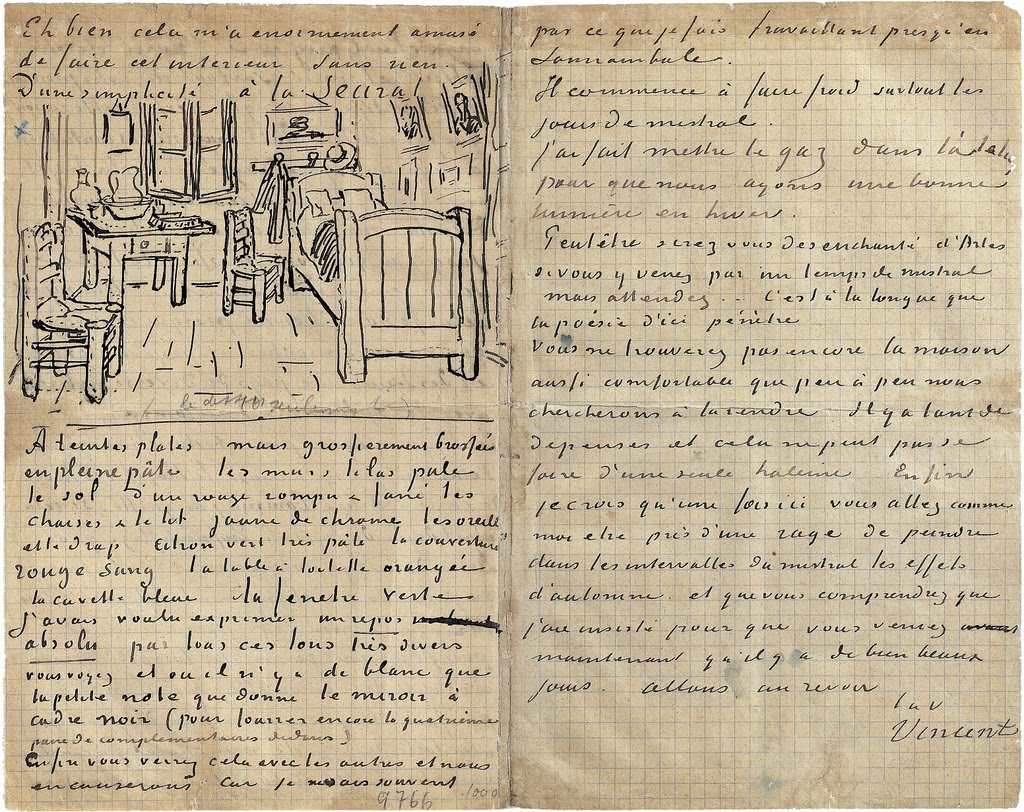 Eh bien cela m'a enormement amusé
de faire cet interieur sans rien.
D'une simplicité à la Seurat
A teintes plates mais grossierement brossées
en pleine pâte les murs lilas pale
le sol d'un rouge rompu & fané les
chaises & le lit jaune de chrome les oreillers
et le drap citron vert très pâle la couverture
rouge sang la table à toilette orangée
la cuvette bleue la fenetre verte
j'avais voulu exprimer un repos
absolu par tous ces tons très divers
vous voyez et où il n'y a de blanc que
la petite note que donne le miroir à
cadre noir (pour fourrer encore la quatrième
paire de complementaires dedans)
Enfin vous verrez cela avec les autres et nous
en causerons car je ne sais souvent
9766
1000
pas ce que je fais travaillant presqu'en
somnambule.
Il commence à faire froid surtout les
jours de mistral.
j'ai fait mettre le gaz dans l'atelier
pour que nous ayons une bonne
lumière en hiver.
Peutêtre serez vous desenchanté d'Arles
si vous y venez par un temps de mistral
mais attendez... C'est à la longue que
la poésie d'ici pénètre
vous ne trouverez pas encore la maison
aussi comfortable que peu à peu nous
chercherons à la rendre Il y a tant de
depenses et cela ne peut pas se
faire d'une seule haleine Enfin
je crois qu'une fois ici vous allez comme
moi etre pris d'une rage de peindre
dans les intervalles du mistral les effets
d'automne. et que vous comprendrez que
j'aie insisté pour que vous veniez
maintenant qu'il y a de bien beaux
jours. allons au revoir
t. à v.
Vincent